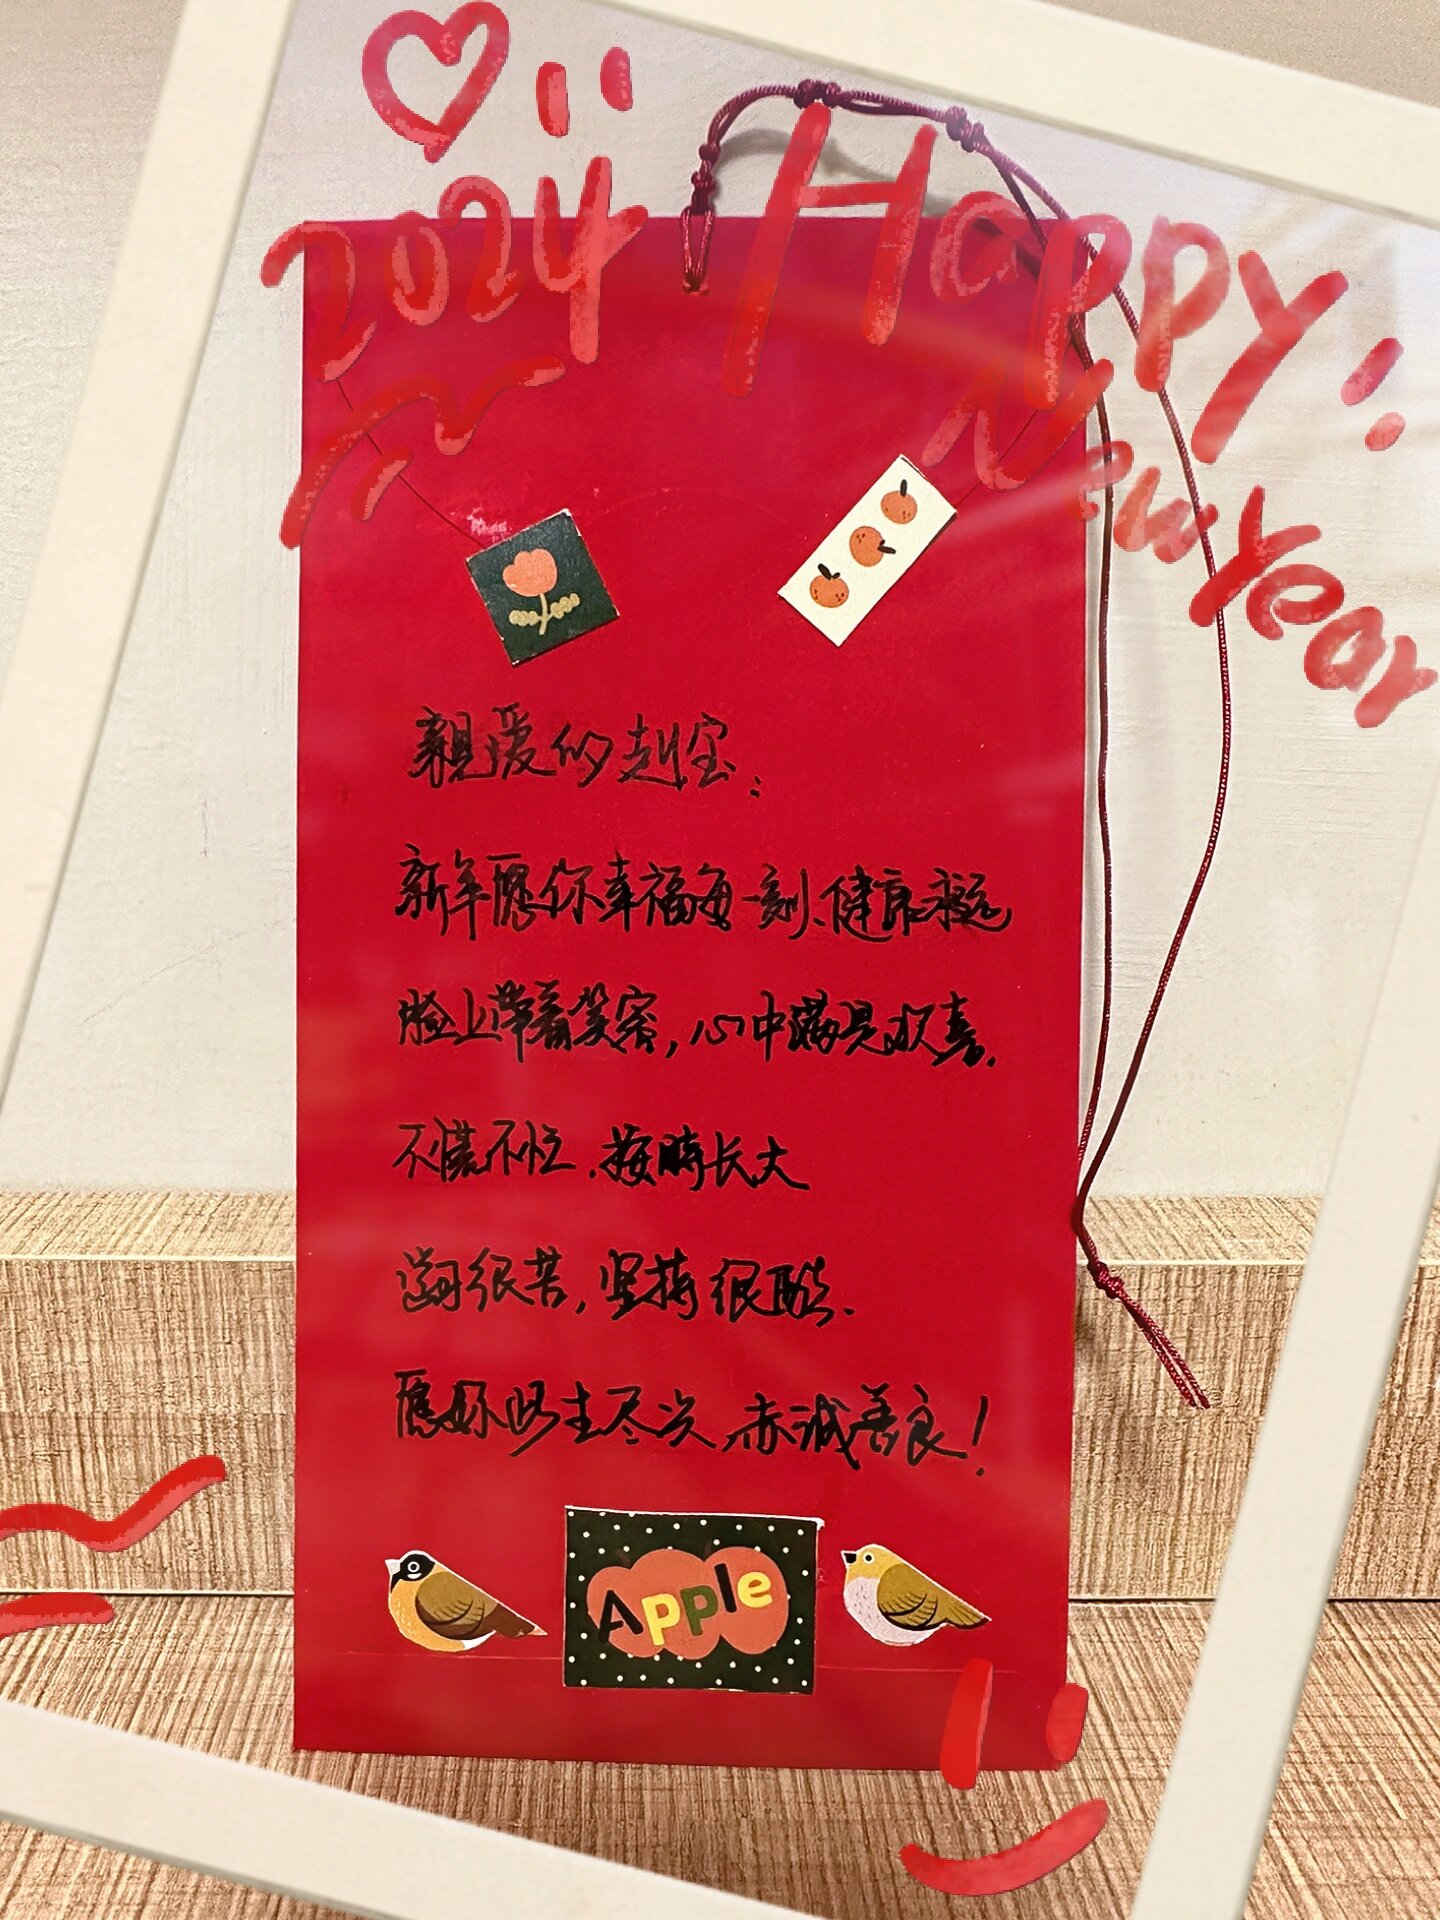 2024 Happy
New Year
親爱的赵宝：
新年愿你幸福每一刻、健康永远
脸上带着笑容，心中满是欢喜.
不慌不忙、按時长大
很苦，坚持很酷.
愿你此生尽兴，赤诚善良！
Apple